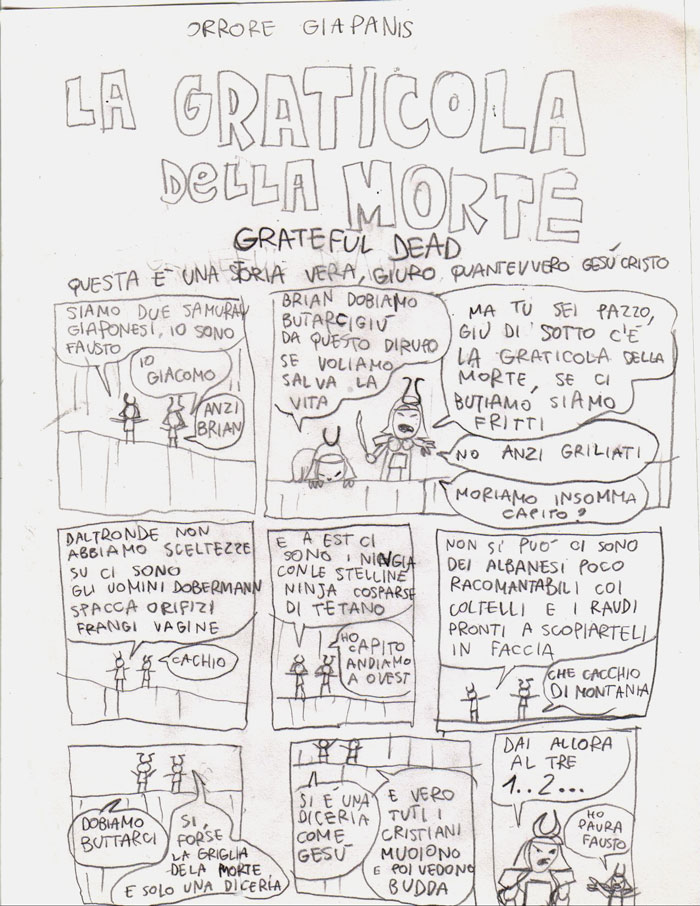 ORRORE GIAPANIS
LA GRATICOLA
DELLA MORTE
GRATEFUL DEAD
QUESTA È UNA STORIA VERA, GIURO QUANTEVVERO GESÚ CRISTO
SIAMO DUE SAMURAY
GIAPONESI, IO SONO
FAUSTO
IO
GIACOMO
ANZI
BRIAN
BRIAN DOBIAMO
BUTARCIGIÚ
DA QUESTO DIRUPO
SE VOLIAMO
SALVA LA
VITA
MA TU SEI PAZZO,
GIÚ DI SOTTO C'È
LA GRATICOLA DELLA
MORTE, SE CI
BUTIAMO SIAMO
FRITTI
NO ANZI GRILIATI
MORIAMO INSOMMA
CAPITO?
DALTRONDE NON
ABBIAMO SCELTEZZE
SU CI SONO
GLI UOMINI DOBERMANN
SPACCA ORIFIZI
FRANGI VAGINE
CACHIO
E A EST CI
SONO I NINGIA
CON LE STELLINE
NINJA COSPARSE
DI TETANO
HO
CAPITO
ANDIAMO
A OVEST
NON SI PUÒ CI SONO
DEI ALBANESI POCO
RACOMANTABILI COI
COLTELLI E I RAUDI
PRONTI A SCOPIARTELI
IN FACCIA
CHE CACCHIO
DI MONTANIA
DOBIAMO
BUTTARCI
SI,
FORSE
LA GRIGLIA
DELA MORTE
E SOLO UNA DICERIA
SI È UNA
DICERIA
COME
GESÙ
E VERO
TUTI I
CRISTIANI
MUOIONO
E POI VEDONO
BUDDA
DAI ALLORA
AL TRE
1..2...
HO
PAURA
FAUSTO